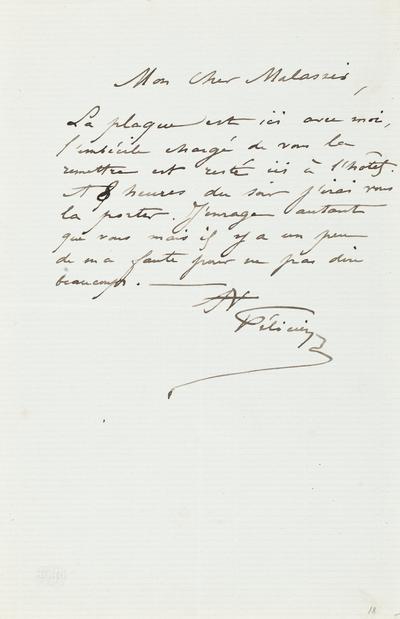 Mon Cher Malassis,
La plaque est ici avec moi,
l'imbécile chargé de vous la
remettre est resté ici à l'hôtel.
A 8 heures du soir j'irai vous
la porter. J'enrage autant
que vous mais il y a un peu
de ma faute pour ne pas dire
beaucoup. —
Félicien
18